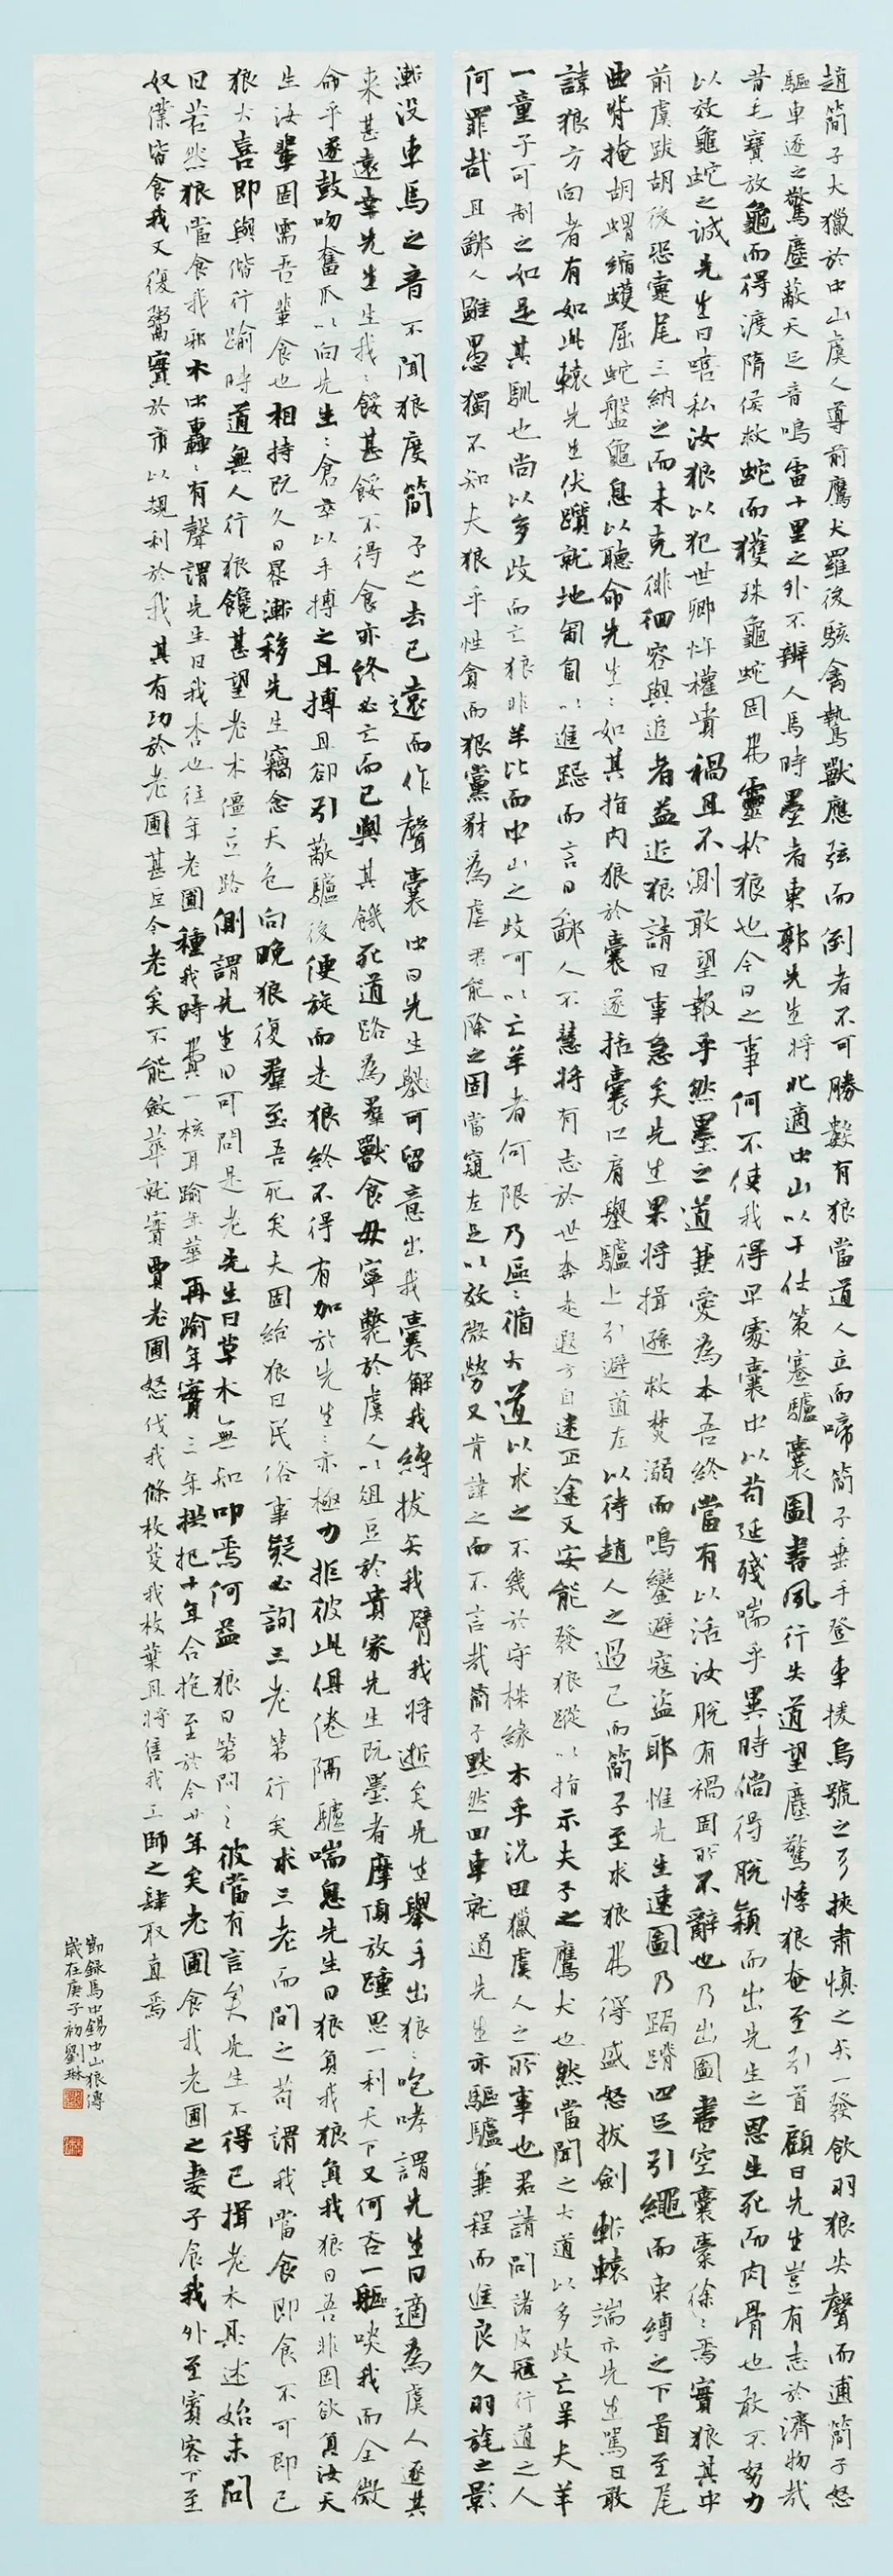 趙簡子大獵於中山虞人導前鷹犬羅後駭禽鷙獸應弦而倒者不可勝數有狼當道人立而啼簡子垂手登車援烏號之弓挾肅慎之矢一發飲羽狼失聲而逋簡子怒
驅車逐之驚塵蔽天足音鳴雷十里之外不辨人馬時墨者東郭先生將北適中山以干仕策蹇驢囊圖書夙行失道望塵驚悸狼奄至引首顧曰先生豈有志於濟物哉
昔毛寶放龜而得渡隋侯救蛇而獲珠龜蛇固弗靈於狼也今日之事何不使我得早處囊中以苟延殘喘乎異時倘得脫穎而出先生之恩生死而肉骨也敢不努力
以效龜蛇之誠先生曰嘻私汝狼以犯世卿忤權貴禍且不測敢望報乎然墨之道兼愛為本吾終當有以活汝脫有禍固所不辭也乃出圖書空囊橐徐徐焉實狼其中
前虞跋胡後恐疐尾三納之而未克徘徊容與追者益近狼請曰事急矣先生果將揖遜救焚溺而鳴鑾避寇盜耶惟先生速圖乃跼蹐四足引繩而束縛之下首至尾
曲脊掩胡蝟縮蠖屈蛇盤龜息以聽命先生:如其指內狼於囊遂括囊口肩舉驢上引避道左以待趙人之過已而簡子至求狼弗得盛怒拔劍斬轅端示先生罵曰敢
諱狼方向者有如此轅先生伏躓就地匍匐以進跽而言曰鄙人不慧將有志於世奔走遐方自迷正途又安能發狼蹤以指示夫子之鷹犬也然嘗聞之大道以多歧亡羊夫羊
一童子可制之如是其馴也尚以多歧而亡狼非羊比而中山之歧可以亡羊者何限乃區:循大道以求之不幾於守株緣木乎況田獵虞人之所事也君請問諸皮冠行道之人
何罪哉且鄙人雖愚獨不知夫狼乎性貪而狠黨豺為虐君能除之固當窺左足以效微勞又肯諱之而不言哉簡子默然回車就道先生亦驅驢兼程而進良久羽旄之影
漸沒車馬之音不聞狼度簡子之去已遠而作聲囊中曰先生舉可留意出我囊解我縛拔矢我臂我將逝矣先生舉手出狼:咆哮謂先生曰適為虞人逐其
來甚遠幸先生生我:餒甚餒不得食亦終必亡而已與其饑死道路為群獸食毋寧斃於虞人以俎豆於貴家先生既墨者摩頂放踵思一利天下又何吝一軀啖我而全微
命乎遂鼓吻奮爪以向先生:倉卒以手搏之且搏且卻引蔽驢後便旋而走狼終不得有加於先生:亦極力拒彼此俱倦隔驢喘息先生曰狼負我狼負我狼曰吾非固欲負汝天
生汝輩固需吾輩食也相持既久日晷漸移先生竊念天色向晚狼復群至吾死矣夫因紿狼曰民俗事疑必詢三老第行矣求三老而問之苟謂我當食即食不可即已
狼大喜即與偕行踰時道無人行狼饞甚望老木僵立路側謂先生曰可問是老先生曰草木無知叩焉何益狼曰第問:彼當有言矣先生不得已揖老木具述始末問
曰若然狼當食我邪木中轟:有聲謂先生曰我杏也往年老圃種我時費一核耳踰年華再踰年實三年拱把十年合抱至於今廿年矣老圃食我老圃之妻子食我外至賓客下至
奴僕皆食我又復鬻實於市以規利於我其有功於老圃甚巨今老矣不能斂華就實賈老圃怒伐我條枚芟我枝葉且將售我工師之肆取直焉
節錄馬中錫中山狼傳
歲在庚子初劉琳